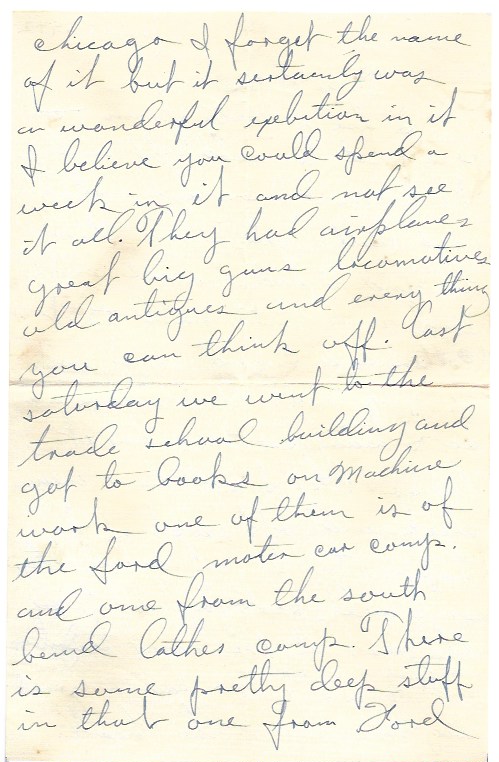 chicago I forget the name
of it but it sertainly was
an wonderful exebition in it
I believe you could spend a
week in it and not see
it all. They had airplanes
great big guns locomotives
old antiques and every thing
you can think off. Last
saturday we went to the
trade school building and
got to books on Machine
work one of them is of
the ford moter car comp.
and one from the south
bend lathes comp. There
is some pretty deep stuff
in that one from Ford